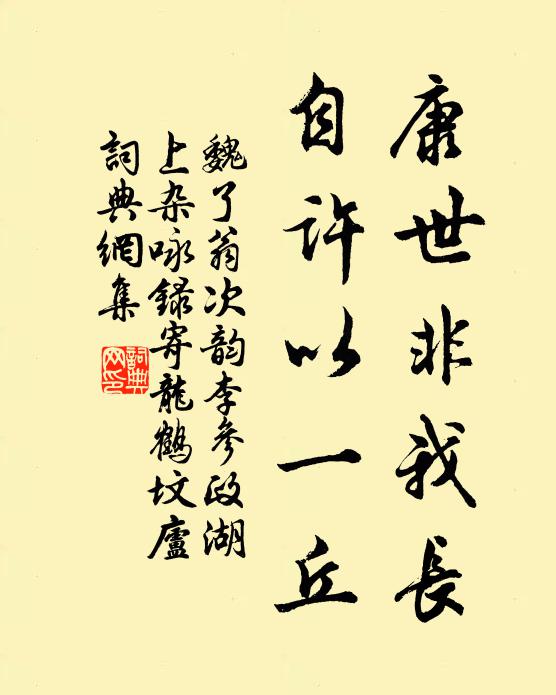 康世非我長
自許以一丘
魏了翁次韵李參政湖
上杂咏録寄龍鶴坟廬
詞典網集
詞典網印